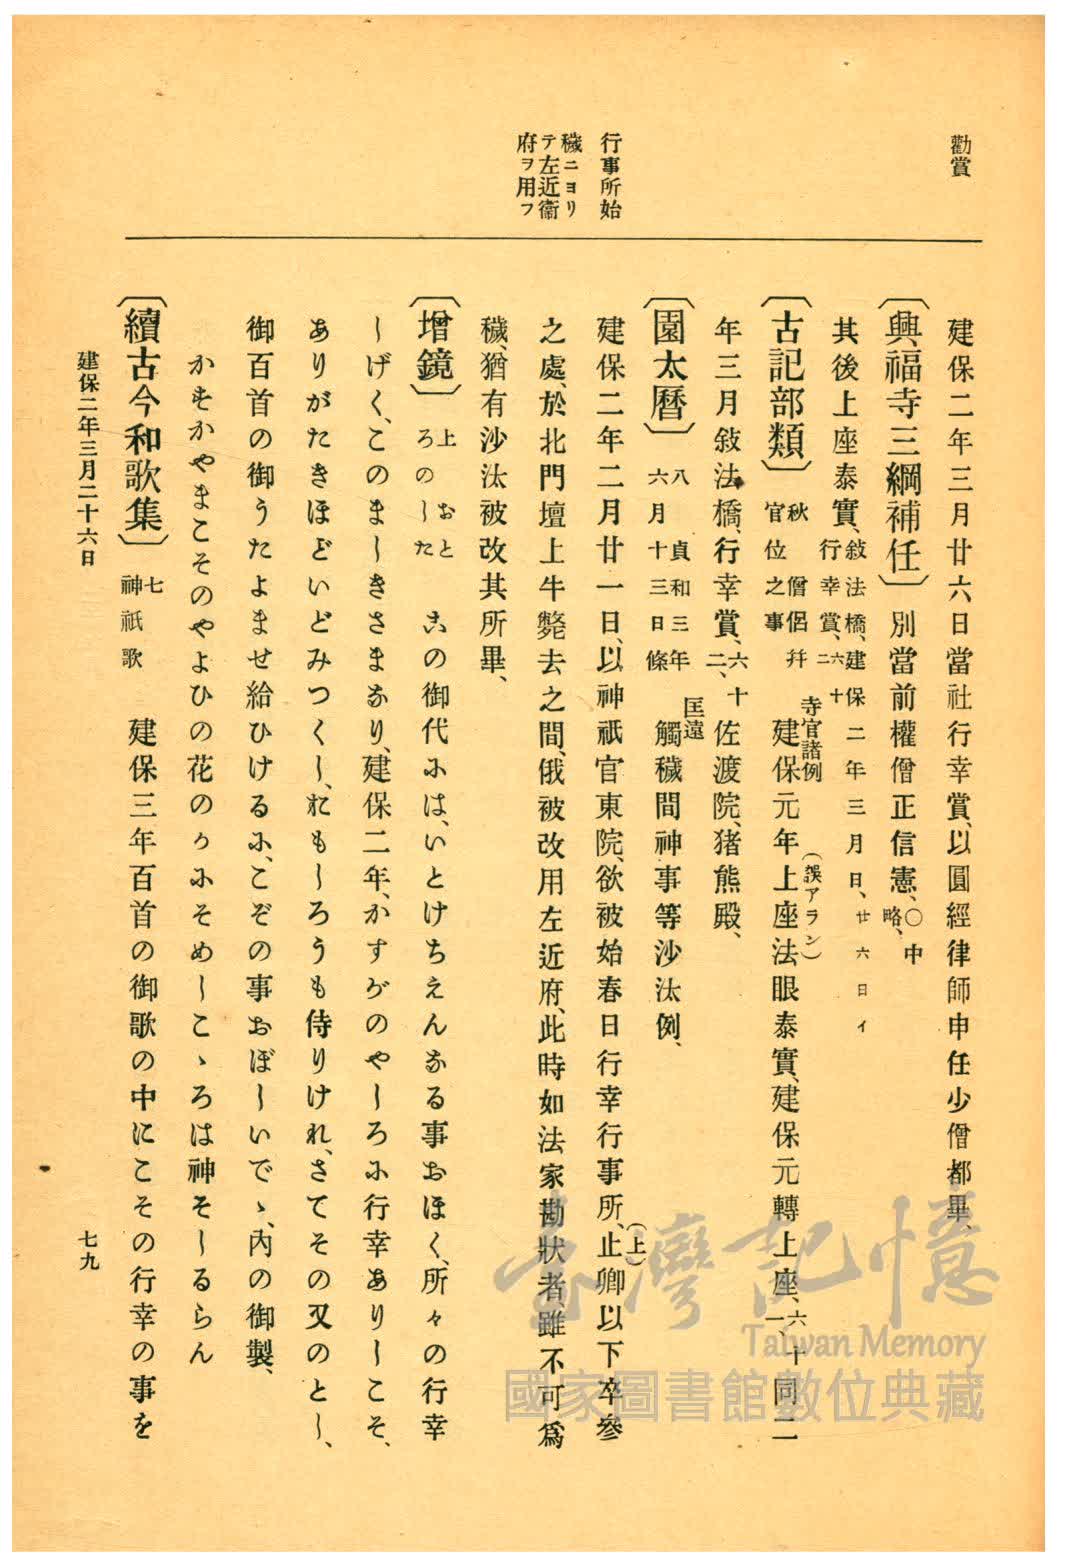 勸賞
行事所始
穢ニヨリ
テ左近衞
府ヲ用フ
建保二年三月廿六日當社行幸賞、以圓經律師申任少僧都畢、
〔興福寺三綱補任〕別當前權僧正信憲、〇中略、
其後上座泰實、敍法橋、建保二年三月日、廿六日イ行幸賞、六十二
〔古記部類〕秋僧侶幷寺官諸例官位之事建保元年上座法眼泰實、建保元轉上座、六十一、同二
(誤アラン)
年三月敍法橋、行幸賞、六十二、佐渡院、猪熊殿、
〔園太曆〕八貞和三年六月十三日條匡遠觸穢間神事等沙汰例、
建保二年二月廿一日、以神祇官東院、欲被始春日行幸行事所、止卿以下卒參
(上)
之處、於北門壇上牛斃去之間、俄被改用左近府、此時如法家勘狀者、雖不可爲
穢、猶有沙汰被改其所畢、
〔增鏡〕上おとろのした この御代には、いとけちえんなる事おほく、所々の行幸
しげく、このましきさまなり、建保二年、かすがのやしろに行幸ありしこそ、
ありがたきほどいどみつくし、おもしろうも侍りけれ、さてその又のとし、
御百首の御うたよませ給ひけるに、こぞの事おぼしいでゝ、内の御製、
かすかやまこそのやよひの花のかにそめしこゝろは神そしるらん
〔續古今和歌集〕七神祇歌 建保三年百首の御歌の中にこその行幸の事を
建保二年三月二十六日
七九
臺灣記憶
Taiwan Memory
國家圖書館數位典藏